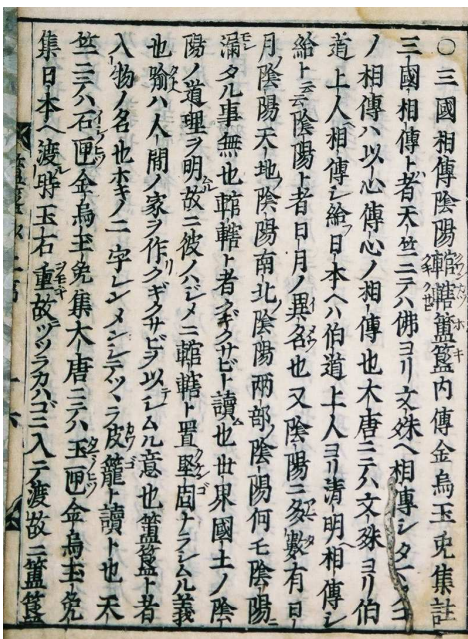 ○三國相傳陰陽輨轄簠簋内傳金烏玉兎集註
三國相傳ト者天竺ニテハ佛ヨリ文殊ヘ相傳シタマヘ
ノ相傳ハ以心傳心ノ相傳也大唐ニテハ文殊ヨリ伯
道上人相傳シ給フ日本ヘハ伯道上人ヨリ清明相傳シ
給ト云云陰陽ト者日月ノ異名也又陰陽ニ多數有日
月ノ陰陽天地ノ陰陽南北ノ陰陽兩部ノ陰陽何モ陰陽ニ
漏タル事無也輨轄ト者クギクサビト讀ム也世界國土ノ陰
陽ノ道理ヲ明ス故ニ彼ノハジメニ輨轄ト置堅固ナラシムル義
也喩ハ人間ノ家ヲ作リクギクサビヲ以テシムル意也簠簋ト者
入物ノ名也ホキノ二字レンメンシテツヾラ皮籠ト讀ト也天
竺ニテハ石匣金烏玉兎集大唐ニテハ玉匣金烏玉兎
集日本ヘ渡ル時玉石重故ニツヾラカハゴニ入テ渡故ニ簠簋